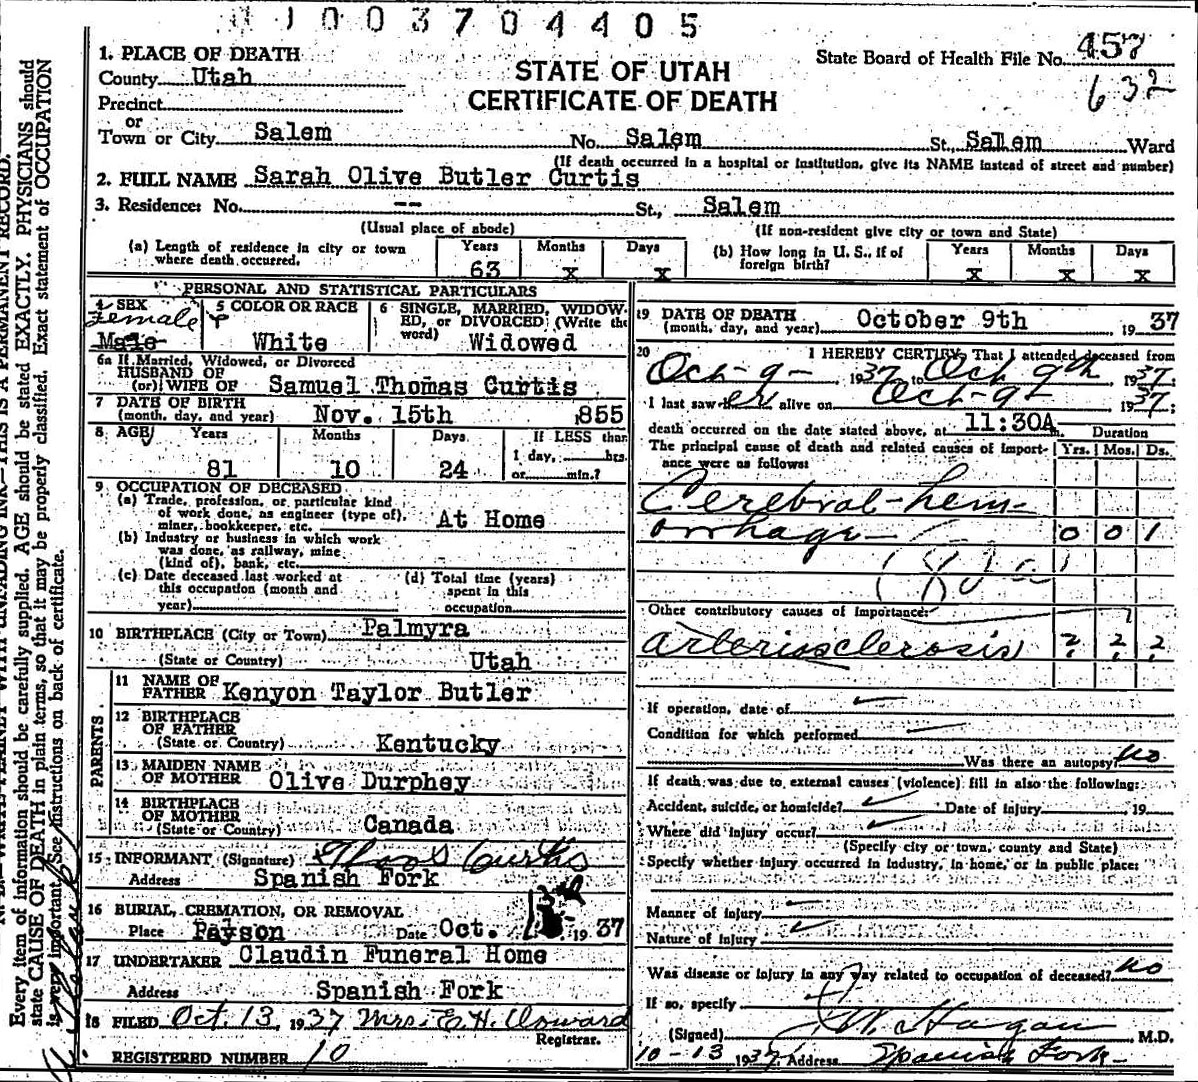 1003704405
1. PLACE OF DEATH
County Utah
Precinct
or
Town or City Salem No. Salem St., Salem Ward
STATE OF UTAH
CERTIFICATE OF DEATH
State Board of Health File No. 457
632
(If death occurred in a hospital or institution, give its NAME instead of street and number)
2. FULL NAME Sarah Olive Butler Curtis
3. Residence: No. -- St., Salem
(Usual place of abode) (If non-resident give city or town and State)
(a) Length of residence in city or town where death occurred. Years 63 Months x Days x
(b) How long in U. S., if of foreign birth? Years x Months x Days x
PERSONAL AND STATISTICAL PARTICULARS
4 SEX
Female
Male
5 COLOR OR RACE
White
6 SINGLE, MARRIED, WIDOWED, or DIVORCED (Write the word) Widowed
6a If Married, Widowed, or Divorced
HUSBAND OF
(or) WIFE OF Samuel Thomas Curtis
7 DATE OF BIRTH
(month, day, and year) Nov. 15th 1855
8 AGE Years 81 Months 10 Days 24 If LESS than 1 day, hrs. or min.?
9 OCCUPATION OF DECEASED
(a) Trade, profession, or particular kind of work done, as engineer (type of), miner, bookkeeper, etc. At Home
(b) Industry or business in which work was done, as railway, mine (kind of), bank, etc.
(c) Date deceased last worked at this occupation (month and year)
(d) Total time (years) spent in this occupation
10 BIRTHPLACE (City or Town) Palmyra
(State or Country) Utah
PARENTS
11 NAME OF FATHER Kenyon Taylor Butler
12 BIRTHPLACE OF FATHER
(State or Country) Kentucky
13 MAIDEN NAME OF MOTHER Olive Durphey
14 BIRTHPLACE OF MOTHER
(State or Country) Canada
15 INFORMANT (Signature) Curtis
Address Spanish Fork
16 BURIAL, CREMATION, OR REMOVAL
Place Payson Date Oct. 1937
17 UNDERTAKER Claudin Funeral Home
Address Spanish Fork
18 FILED Oct. 13, 1937 Mrs. E. H.
Registrar.
REGISTERED NUMBER 10
19 DATE OF DEATH
(month, day, and year) October 9th 1937
20 I HEREBY CERTIFY, That I attended deceased from
Oct-9- 1937 to Oct 9th 1937.
I last saw her alive on Oct-9th 1937;
death occurred on the date stated above, at 11:30A m. Duration
The principal cause of death and related causes of importance were as follows: Yrs. Mos. Ds.
Cerebral-hem-
orrhage- 0 0 1
Other contributory causes of importance:
arteriosclerosis ? ? ?
If operation, date of
Condition for which performed
Was there an autopsy? no
If death was due to external causes (violence) fill in also the following:
Accident, suicide, or homicide? Date of injury 19
Where did injury occur?
(Specify city or town, county and State)
Specify whether injury occurred in industry, in home, or in public place:
Manner of injury
Nature of injury
Was disease or injury in any way related to occupation of deceased? no
If so, specify
(Signed) Hagan M.D.
10-13 1937, Address Spanish Fork-
Every item of information should be carefully supplied. AGE should be stated EXACTLY. PHYSICIANS should
state CAUSE OF DEATH in plain terms, so that it may be properly classified. Exact statement of OCCUPATION
is very important. See instructions on back of certificate.